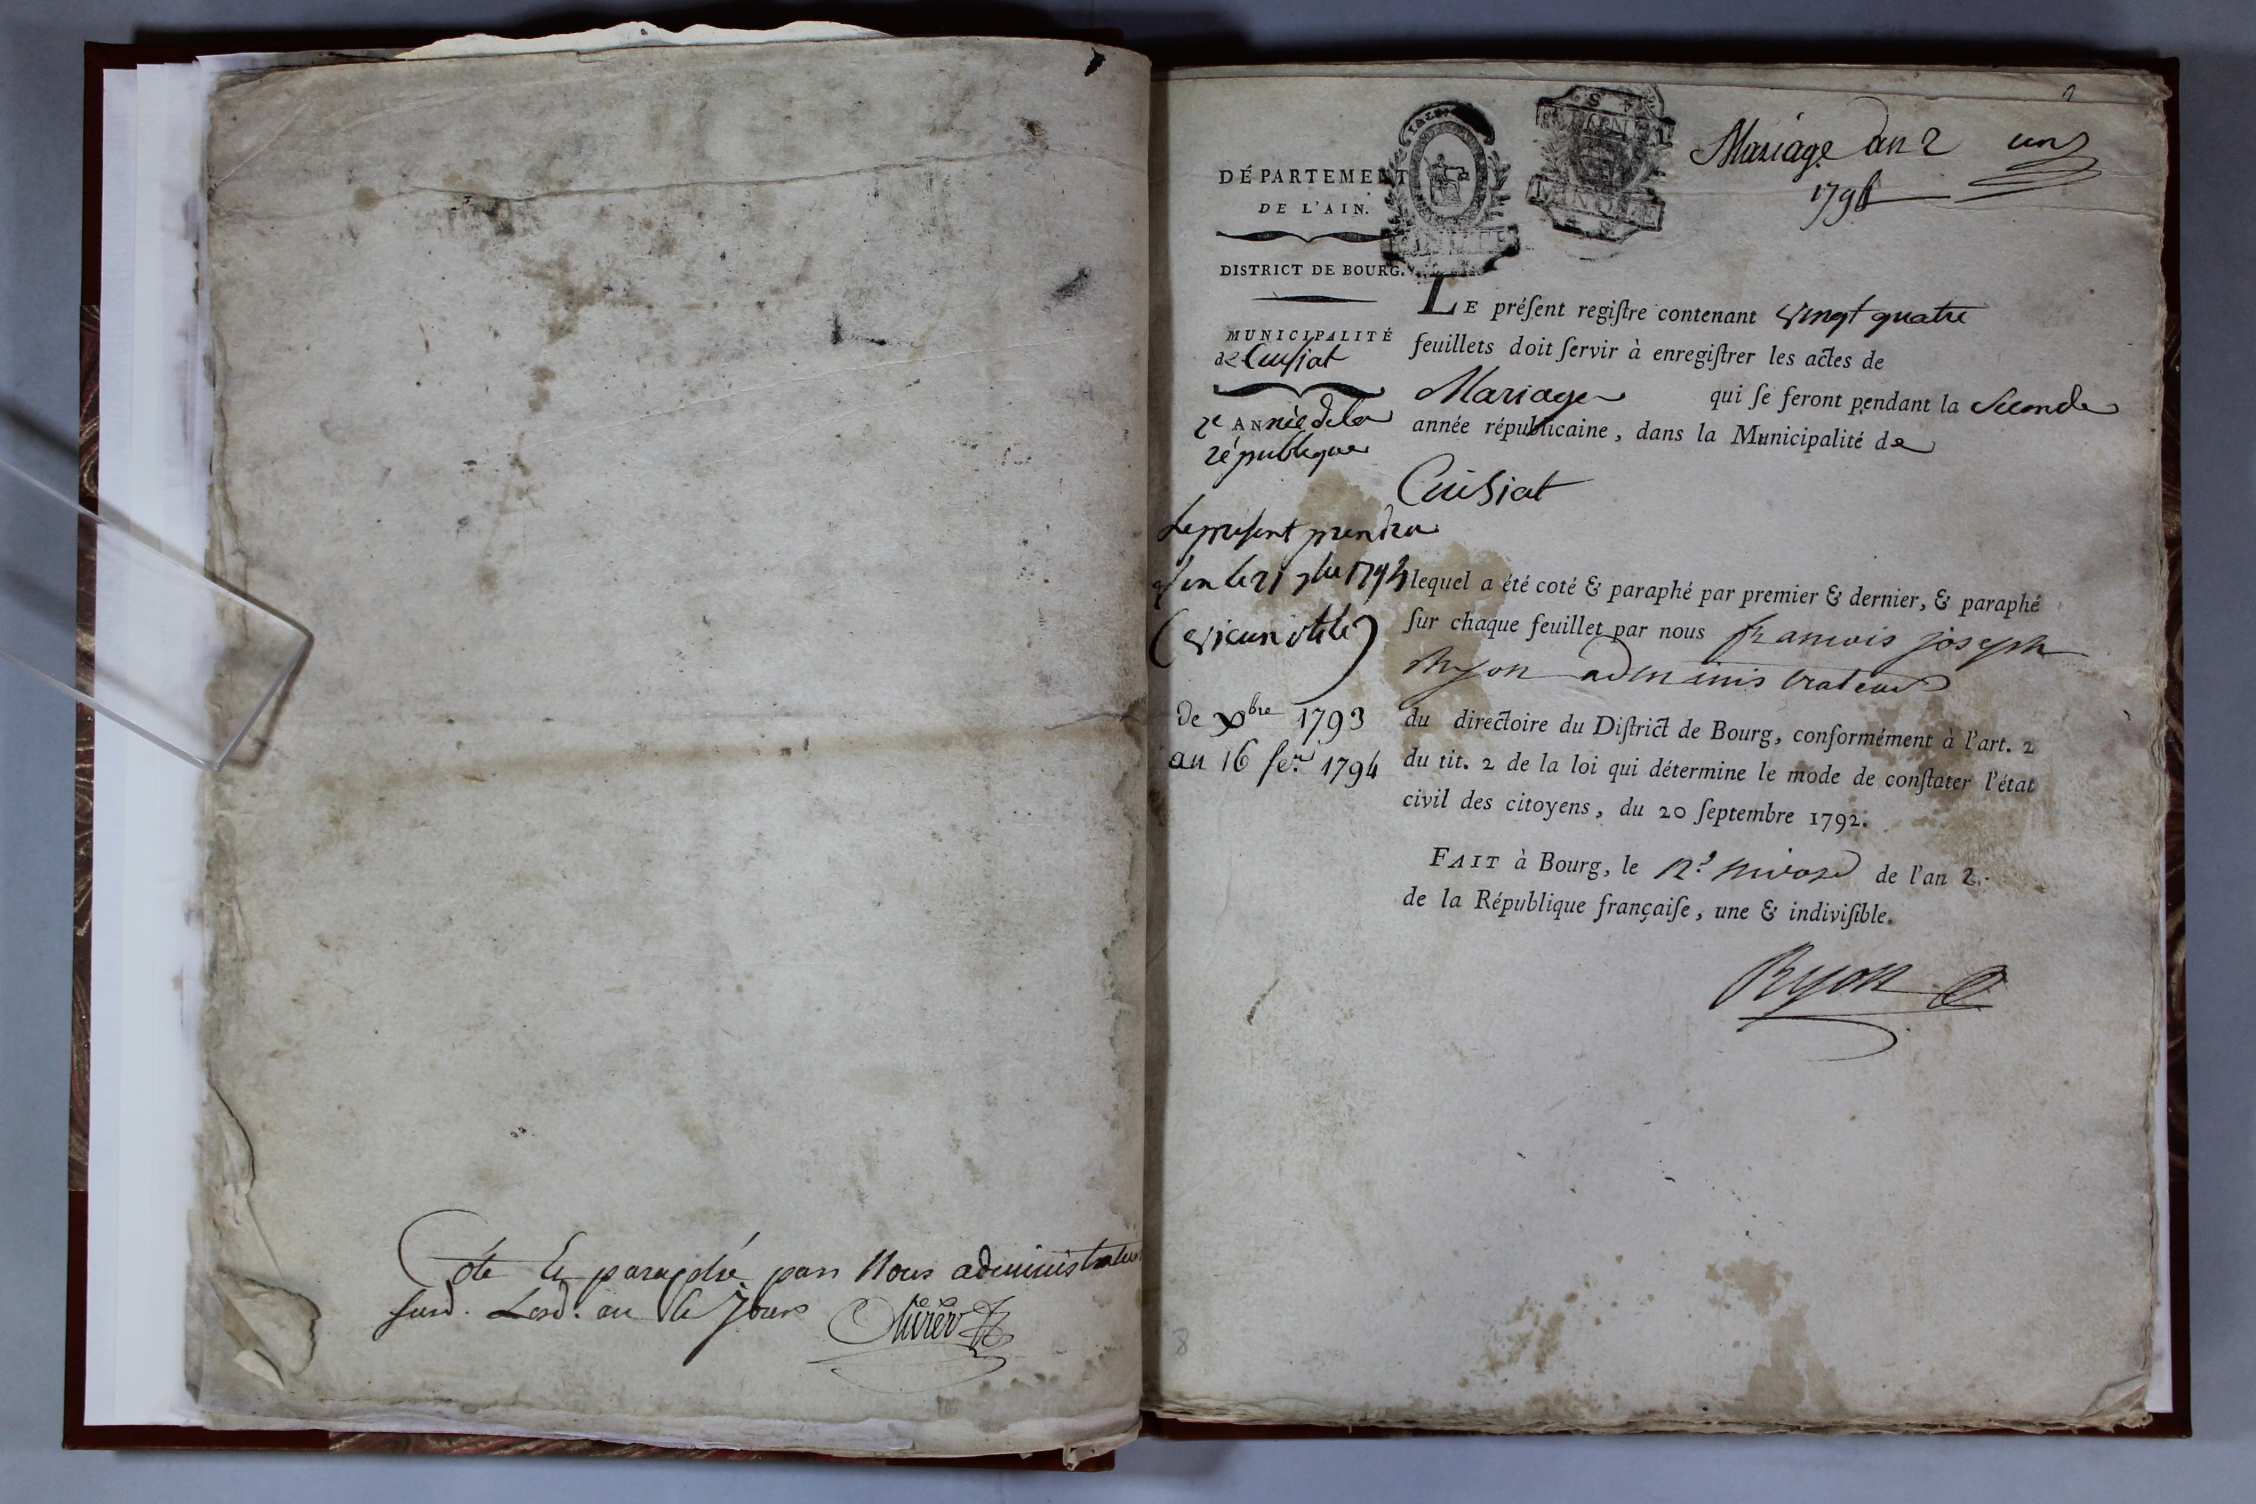 Coté & paraphé par Nous administrateur
susd. Lesd. an & jours Olivier
Mariage an 2 un
1794
DÉPARTEMENT
DE L'AIN.
DISTRICT DE BOURG.
MUNICIPALITÉ
de Cuisiat
2e ANnée de la
république
Le présent prendra
fin le 21 7bre 1794
(vieux stile)
de xbre 1793
au 16 fer. 1794
LE préſent regiſtre contenant vingt quatre
feuillets doit ſervir à enregiſtrer les actes de
Mariage qui ſe feront pendant la seconde
année républicaine, dans la Municipalité de
Cuisiat
lequel a été coté & paraphé par premier & dernier, & paraphé
ſur chaque feuillet par nous francois joseph
Ryon administrateur
du directoire du Diſtrict de Bourg, conformément à l'art. 2
du tit. 2 de la loi qui détermine le mode de conſtater l'état
civil des citoyens, du 20 ſeptembre 1792.
FAIT à Bourg, le 12 nivose de l'an 2.
de la République françaiſe, une & indiviſible.
Ryon
8